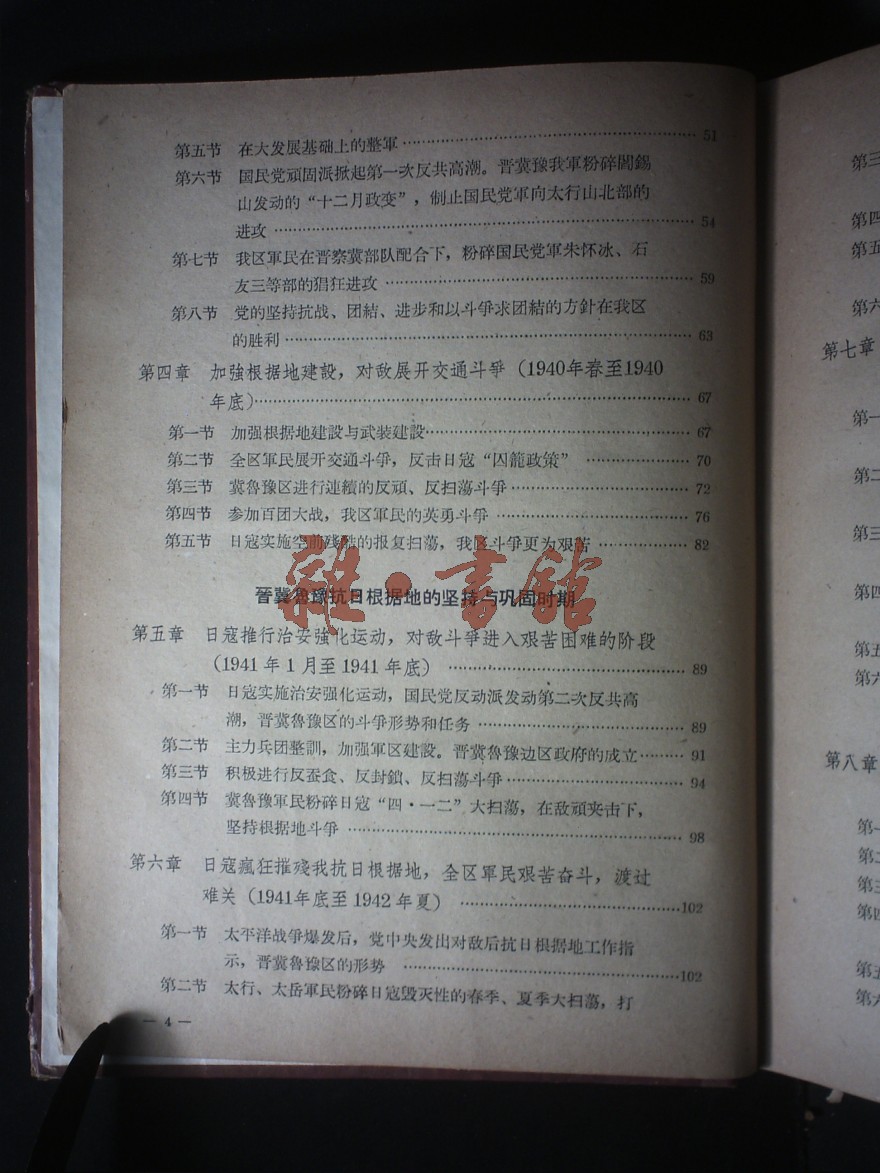 第五节 在大发展基础上的整軍……51
第六节 国民党頑固派掀起第一次反共高潮。晋冀豫我軍粉碎閻錫
山发动的“十二月政变”，制止国民党軍向太行山北部的
进攻……54
第七节 我区軍民在晋察冀部队配合下，粉碎国民党軍朱怀冰、石
友三等部的猖狂进攻……59
第八节 党的坚持抗战、团結、进步和以斗爭求团結的方針在我区
的胜利……63
第四章 加強根据地建設，对敌展开交通斗爭（1940年春至1940
年底）……67
第一节 加强根据地建設与武装建設……67
第二节 全区軍民展开交通斗爭，反击日寇“囚籠政策”……70
第三节 冀魯豫区进行連續的反頑、反扫蕩斗爭……72
第四节 参加百团大战，我区軍民的英勇斗爭……76
第五节 日寇实施空前残酷的报复扫蕩，我区斗爭更为艰苦……82
雜·書館
晋冀魯豫抗日根据地的坚持与巩固时期
第五章 日寇推行治安強化运动，对敌斗爭进入艰苦困难的阶段
（1941年1月至1941年底）……89
第一节 日寇实施治安强化运动，国民党反动派发动第二次反共高
潮，晋冀魯豫区的斗爭形势和任务……89
第二节 主力兵团整訓，加强軍区建設。晋冀魯豫边区政府的成立……91
第三节 积极进行反蚕食、反封鎖、反扫蕩斗爭……94
第四节 冀魯豫軍民粉碎日寇“四·一二”大扫蕩，在敌頑夹击下，
坚持根据地斗爭……98
第六章 日寇瘋狂摧殘我抗日根据地，全区軍民艰苦奋斗，渡过
难关（1941年底至1942年夏）……102
第一节 太平洋战爭爆发后，党中央发出对敌后抗日根据地工作指
示，晋冀魯豫区的形势……102
第二节 太行、太岳軍民粉碎日寇毁灭性的春季、夏季大扫蕩，打
— 4 —
第三
第四
第五
第六
第七章
第一
第二
第三
第四
第五
第六
第八章
第一
第二
第三
第四
第五
第六